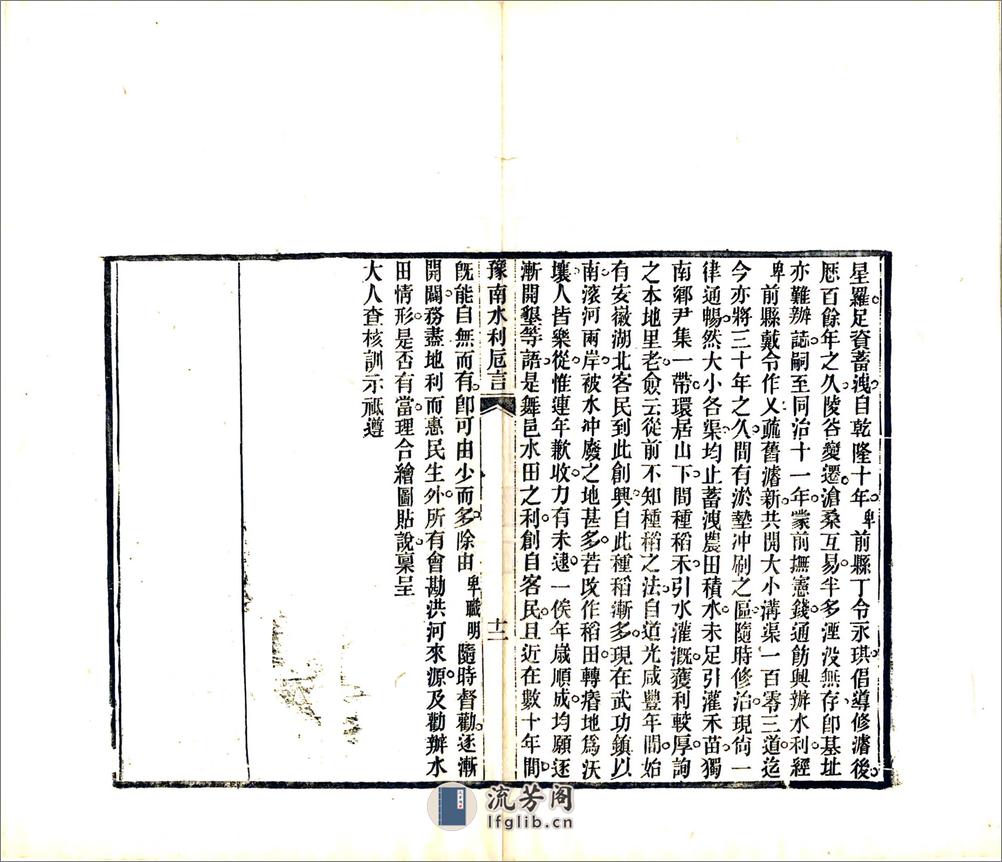 星羅足資蓄洩自乾隆十年卑前縣丁令永琪倡導修濬後
厯百餘年之久陵谷變遷滄桑互易半多湮没無存卽基址
亦難辦誌嗣至同治十一年蒙前撫憲錢通飭興辦水利經
卑前縣戴令作乂疏舊濬新共開大小溝渠一百零三道迄
今亦將三十年之久間有淤墊冲刷之區隨時修治現尙一
律通暢然大小各渠均止蓄洩農田積水未足引灌禾苗獨
南鄉尹集一帶環居山下間種稻禾引水灌溉獲利較厚詢
之本地里老僉云從前不知種稻之法自道光咸豐年間始
有安徽湖北客民到此創興自此種稻漸多現在武功鎮以
南滚河兩岸被水冲廢之地甚多若改作稻田轉瘠地爲沃
壤人皆樂從惟連年歉收力有未逮一俟年歲順成均願逐
漸開墾等語是舞邑水田之利創自客民且近在數十年間
豫南水利卮言
十二
旣能自無而有卽可由少而多除由卑職明隨時督勸逐漸
開闢務盡地利而惠民生外所有會勘洪河來源及勸辦水
田情形是否有當理合繪圖貼說稟呈
大人查核訓示祗遵
流芳阁
lfglib.cn